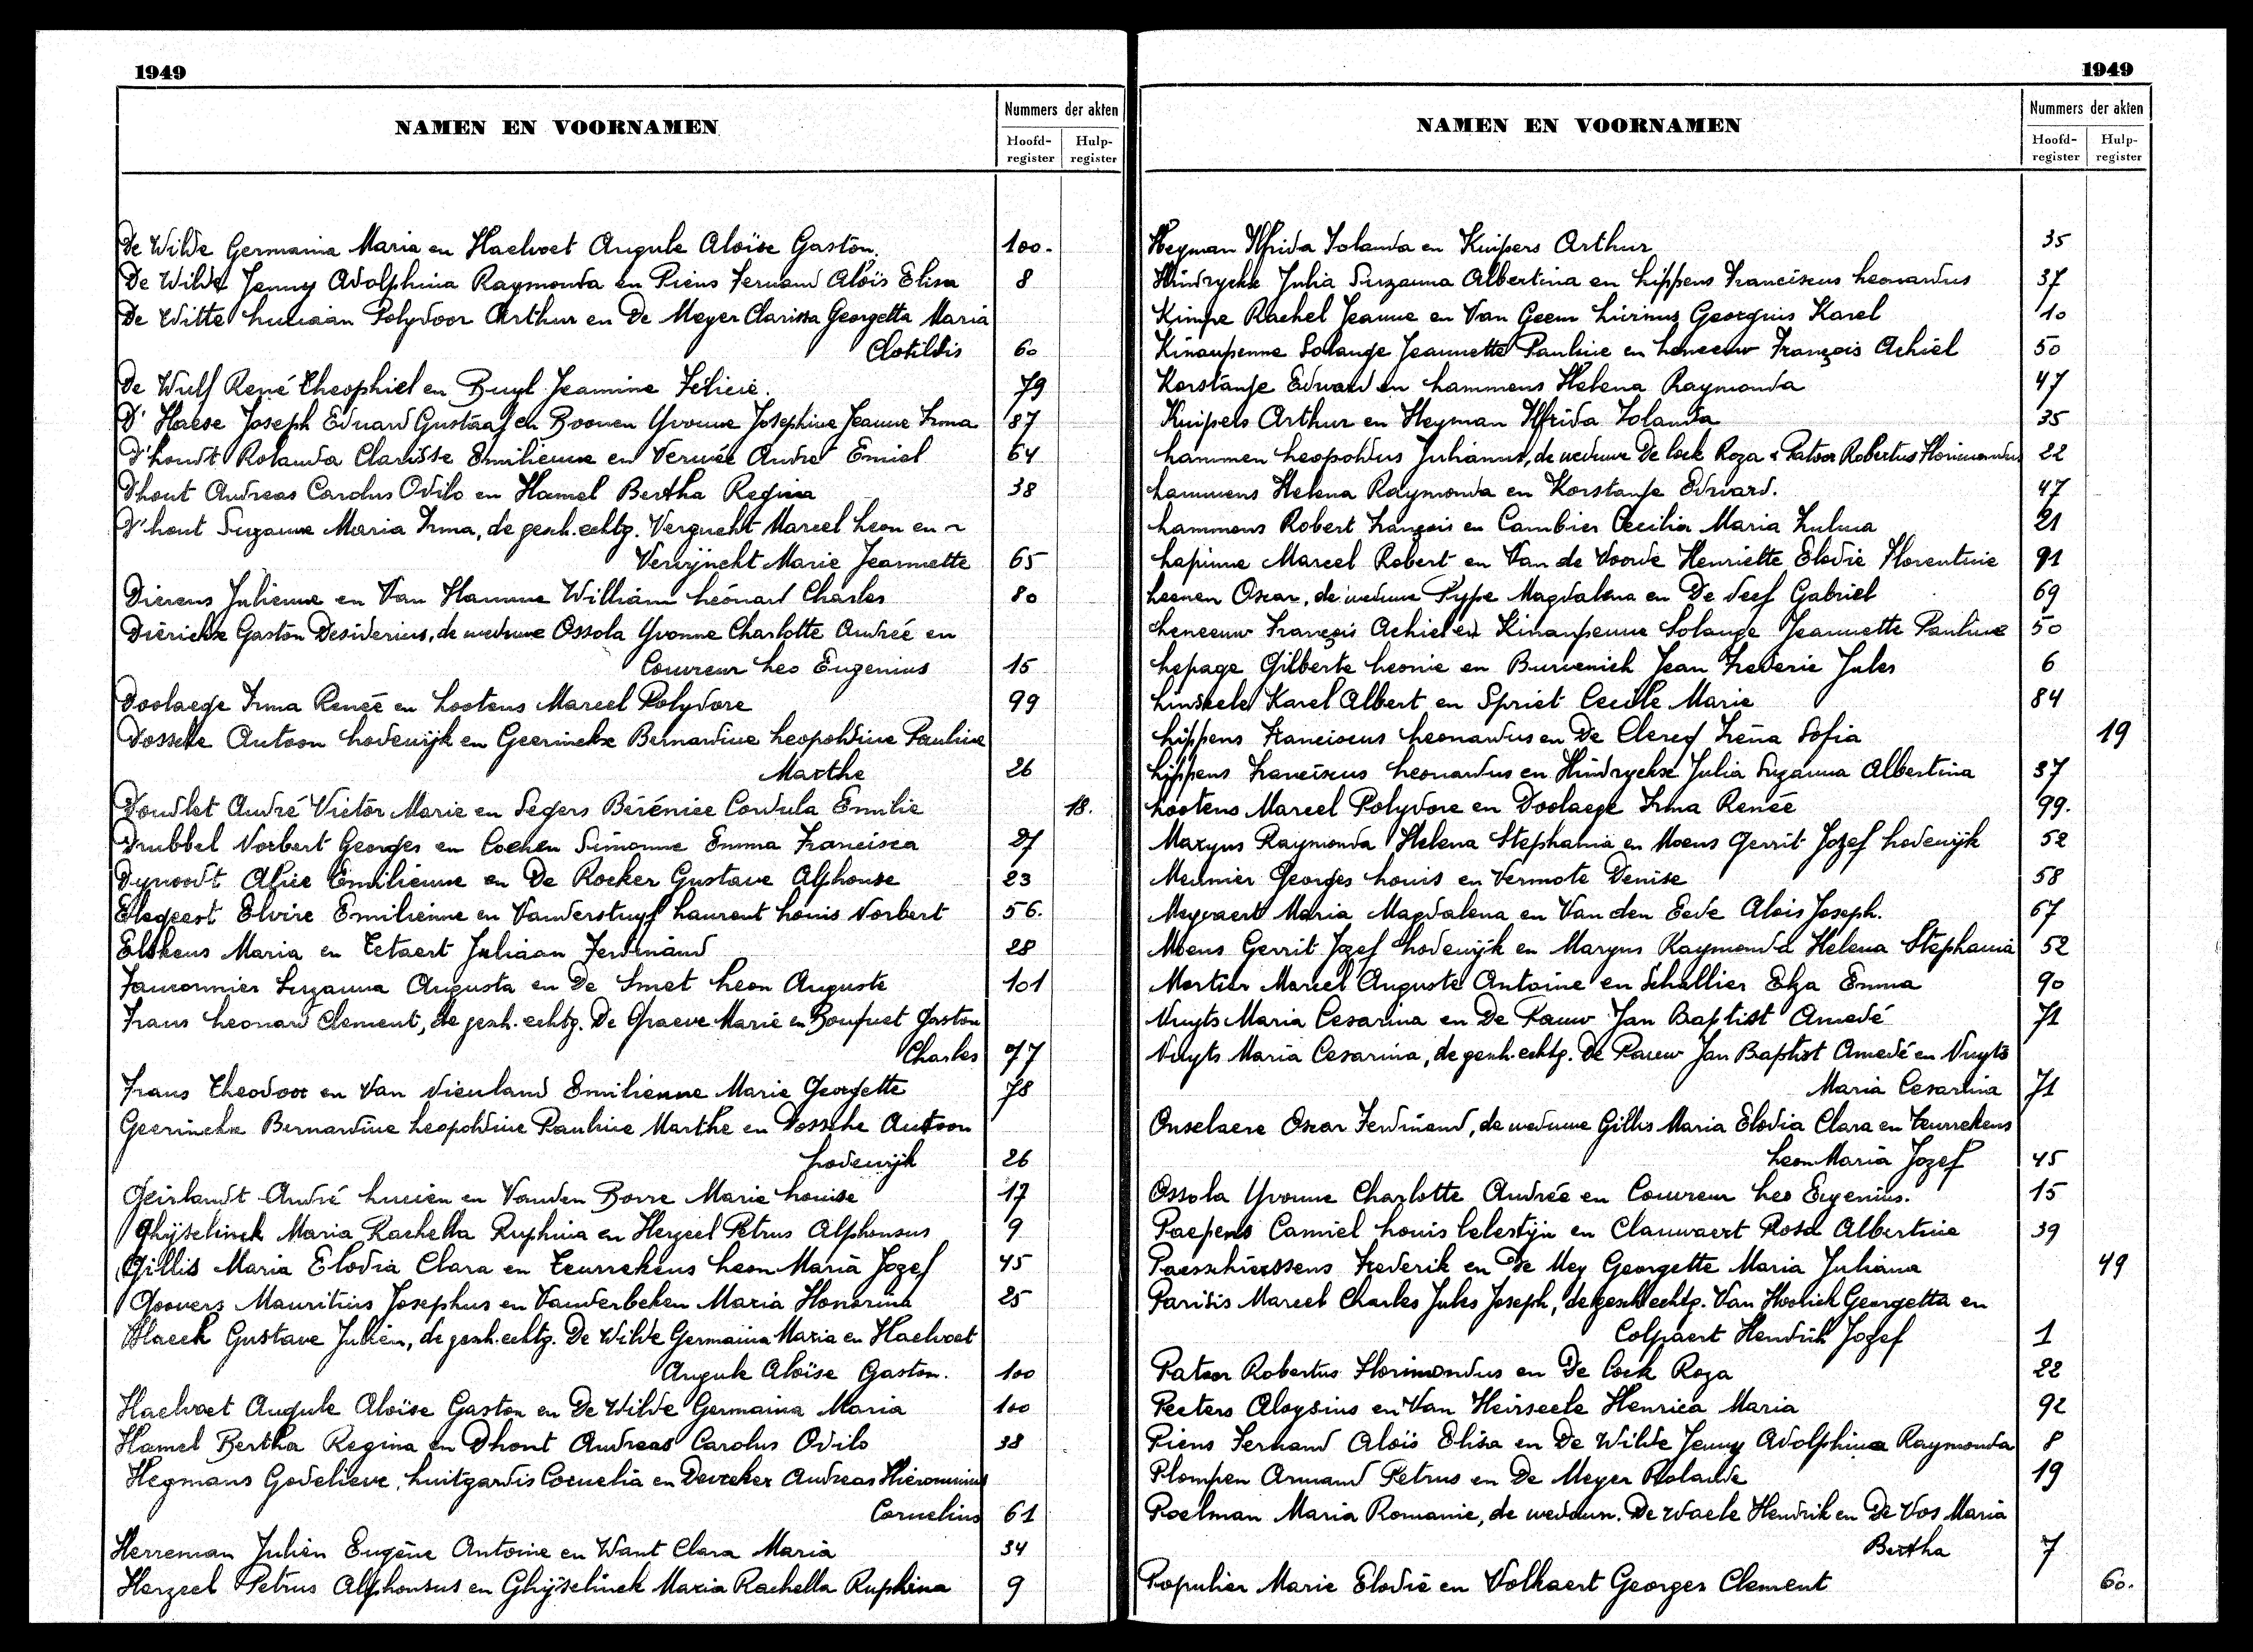 1949
NAMEN EN VOORNAMEN
Nummers der akten
Hoofd-register
Hulp-register
De Wilde Germaina Maria en Haelvoet Angule Aloïse Gaston. 100.
De Wilde Jenny Adolphina Raymonda en Piens Fernand Aloïs Elisa 8
De Witte Luciaan Polydoor Arthur en De Meyer Clarissa Georgetta Maria
Clotildis 60
De Wulf René Theophiel en Buyl Jeannine Félicie. 79
D'Haese Joseph Eduard Gustaaf en Boonen Yvonne Josephine Jeanne Irma 87
D'hondt Rolanda Clarisse Emilienne en Vermée André Emiel 64
Dhont Andreas Carolus Odilo en Hamel Bertha Regina 38
D'hont Suzanne Maria Irma, de gesch. echtg. Vergucht Marcel Leon en
Verwijncht Marie Jeannette 65
Dierens Julienne en Van Hamme William Léonard Charles 80
Diericks Gaston Desiderius, de weduwe Ossola Yvonne Charlotte Andrée en
Couvreur Leo Eugenius 15
Doolaege Irma Renée en Lootens Marcel Polydore 99
Dossche Antoon Lodewijk en Geerinckx Bernardine Leopoldine Pauline
Marthe 26
Doudlet André Victor Marie en Segers Bérénice Cordula Emilie 18.
Drubbel Norbert Georges en Cochen Simonne Emma Francisca 27
Dynoodt Alice Emilienne en De Rocker Gustave Alphonse 23
Elegeest Elvire Emilienne en Vanderstuyf Laurent Louis Norbert 56.
Elskens Maria en Tetaert Juliaan Ferdinand 28
Fauconnier Suzanna Augusta en De Smet Leon Auguste 101
Frans Leonard Clement, de gesch. echtg. De Graeve Marie en Bouquet Gaston
Charles 77
Frans Theodoor en Van Vieuland Emilienne Marie Georgette 78
Geerinckx Bernardine Leopoldine Pauline Marthe en Dossche Antoon
Lodewijk 26
Geirlandt André Lucien en Vanden Borre Marie Louise 17
Ghijselinck Maria Rachella Ruphina en Herzeel Petrus Alphonsus 9
Gillis Maria Elodia Clara en Teurrekens Leon Maria Jozef 45
Goovers Mauritius Josephus en Vanderbeken Maria Honorina 25
Haeck Gustave Julien, de gesch. echtg. De Wilde Germaina Maria en Haelvoet
Angule Aloïse Gaston. 100
Haelvoet Angule Aloïse Gaston en De Wilde Germaina Maria 100
Hamel Bertha Regina en Dhont Andreas Carolus Odilo 38
Heymans Godelieve Luitgardis Cornelia en Devreker Andreas Hieronimus
Cornelius 61
Herreman Julien Eugène Antoine en Want Clara Maria 34
Herzeel Petrus Alphonsus en Ghijselinck Maria Rachella Ruphina 9
1949
NAMEN EN VOORNAMEN
Nummers der akten
Hoofd-register
Hulp-register
Heyman Elfrida Iolanda en Kuipers Arthur 35
Hindryckx Julia Suzanna Albertina en Lippens Franciscus Leonardus 37
Kimpe Rachel Jeanne en Van Geem Livinus Georgius Karel 10
Kinaupenne Solange Jeannette Pauline en Leneeuw François Achiel 50
Korstanje Edward en Lammens Helena Raymonda 47
Kuipers Arthur en Heyman Elfrida Iolanda 35
Lammen Leopoldus Julianus, de weduwe De Cock Roza & Patoor Robertus Florimondus 22
Lammens Helena Raymonda en Korstanje Edward. 47
Lammens Robert François en Cambier Cecilia Maria Zulma 21
Lapinne Marcel Robert en Van de Voorde Henriette Elodie Florentine 91
Leenen Oscar, de weduwe Pype Magdalena en De Neef Gabriel 69
Leneeuw François Achiel en Kinaupenne Solange Jeannette Pauline 50
Lepage Gilberte Leonie en Burvenich Jean Frederic Jules 6
Linskele Karel Albert en Spriet Cecile Marie 84
Lippens Franciscus Leonardus en De Clercq Irena Sofia 19
Lippens Franciscus Leonardus en Hindryckx Julia Suzanna Albertina 37
Lootens Marcel Polydore en Doolaege Irma Renée 99.
Maryns Raymonda Helena Stephania en Moens Gerrit Jozef Lodewijk 52
Meunier Georges Louis en Vermote Denise 58
Meyvaert Maria Magdalena en Van den Eede Alois Joseph. 67
Moens Gerrit Jozef Lodewijk en Maryns Raymonda Helena Stephania 52
Mortier Marcel Auguste Antoine en Schellier Elza Emma 90
Nuyts Maria Cesarina en De Pauw Jan Baptist Amedé 71
Nuyts Maria Cesarina, de gesch. echtg. De Pauw Jan Baptist Amedé en Nuyts
Maria Cesarina 71
Onselaere Oscar Ferdinand, de weduwe Gillis Maria Elodia Clara en Teurrekens
Leon Maria Jozef 45
Ossola Yvonne Charlotte Andrée en Couvreur Leo Eugenius. 15
Paepens Camiel Louis Celestijn en Clauwaert Rosa Albertine 39
Paesschierssens Frederik en De Mey Georgette Maria Juliana 49
Parisis Marcel Charles Jules Joseph, de gesch. echtg. Van Hoolick Georgetta en
Colpaert Hendrik Jozef 1
Patoor Robertus Florimondus en De Cock Roza 22
Peeters Aloysius en Van Heirseele Henrica Maria 92
Piens Fernand Aloïs Elisa en De Wilde Jenny Adolphina Raymonda 8
Plompen Armand Petrus en De Meyer Rolande 19
Poelman Maria Romanie, de weduwn. De Waele Hendrik en De Vos Maria
Bertha 7
Populier Marie Elodie en Volkaert Georges Clement 60.